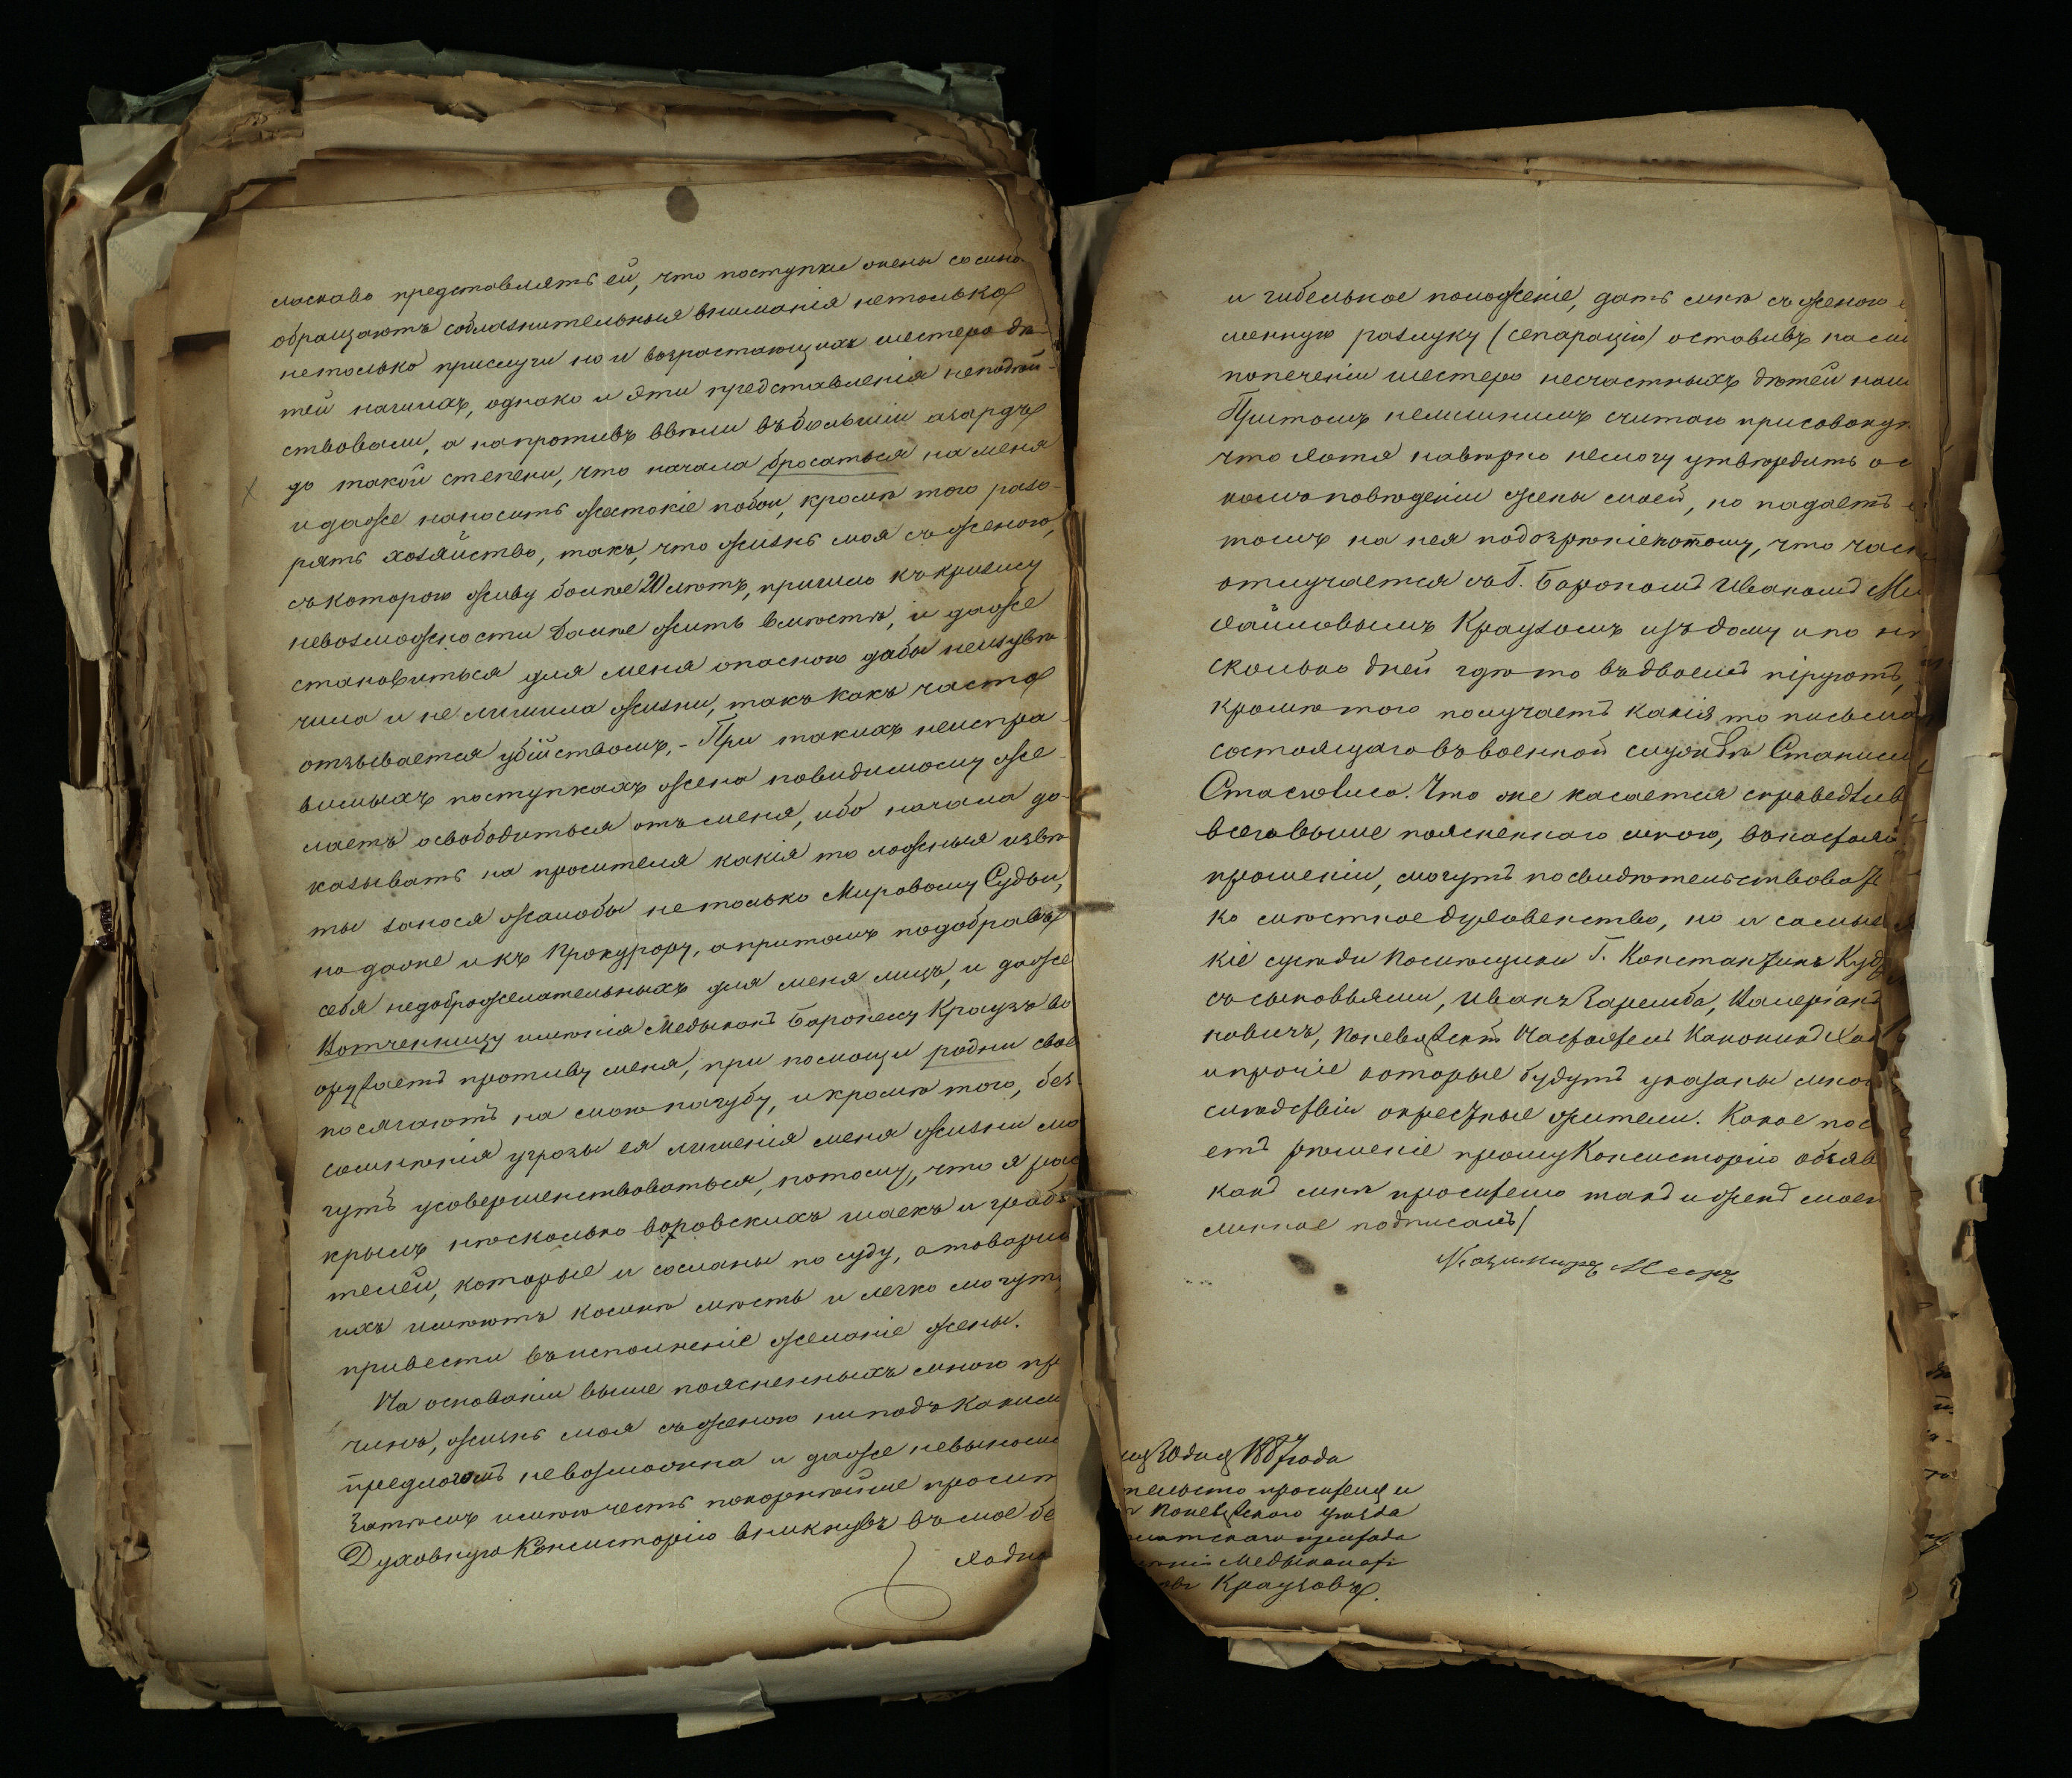 ласкаво представлять ей, что поступки жены со мною
обращаютъ соблазнительныя вниманія нетолько
нетолько прислуги но и возрастающихъ шестеро дѣ-
тей нашихъ, однако и эти представленія неподѣй-
ствовали, а напротивъ ввели въ большій азардъ
до такой степени, что начала бросаться на меня
и даже наносить жестокіе побои, кромѣ того разо-
рять хозяйство, такъ, что жизнь моя съ женою,
съ которою живу болѣе 20 лѣтъ, пришло къ кризису
невозможности далѣе жить вмѣстѣ, и даже
становиться для меня опасною дабы неизувѣ-
чила и не лишила жизни, такъ какъ часто
отзывается убійствомъ. - При такихъ неиспра-
вимыхъ поступкахъ жена повидимому же-
лаетъ освободиться отъ меня, ибо начала до-
казывать на просителя какія то ложныя извѣ-
ты занося жалобы нетолько Мировому Судьи,
но даже и къ Прокурору, а притомъ подобравъ
себя недоброжелательныхъ для меня лицъ, и даже
Вотченницу имѣнія Медыконъ Баронесу Краузъ во
оружаетъ противу меня, при помощи родни свое
посягаютъ на мою пагубу, и кромѣ того, без-
сомнѣнія угрозы ея лишенія меня жизни мо
гутъ усовершенствоваться, потому, что я рас
крылъ нѣсколько воровскихъ шаекъ и граби
телей, которые и сосланы по суду, а товарищ
ихъ имѣютъ ко мнѣ мѣсть и легко могутъ
привести въ исполненіе желаніе жены.
На основаніи выше поясненныхъ мною пр
чинъ, жизнь моя съ женою ни подъ какимъ
предлогомъ невозможна и даже невыносим
Затѣмъ имѣю честь покорнѣйше просить
Духовную Консисторію вникнувъ въ мое бе
ходно
и гибельное положеніе, дать мнѣ съ женою
менную разлуку (сепарацію) оставивъ на мо
попеченіи шестеро несчастныхъ дѣтей наш
Притомъ нелишнимъ считаю присовокуп
что хотя навѣрно немогу утвердить о
комъ поведеніи жены моей, но падаетъ
томъ на нея подозрѣніе потому, что час
отлучается съ Г. Барономъ Иваномъ Ми
хайловымъ Краузомъ изъ дому и по нѣ
сколько дней гдѣ то въ двоемъ пируютъ,
кромѣ того получаетъ какія то письма
состоящаго въ военной службѣ Станисл
Что же касается справедлив
всего выше поясненнаго мною, въ настоя
прошеніи, могутъ посвидѣтельствоват
ко мѣстное духовенство, но и самые
кіе сусѣди Помѣщики Г. Константинъ Куд
съ сыновьями, Иванъ Заремба, Валеріанъ
новичъ, Поневѣжскій Настоятель Каноникъ
и прочіе которые будутъ указаны мною
слѣдствіи окрестные жители. Какое пос
етъ рѣшеніе прошу Консисторію объяв
какъ мнѣ просителю такъ и женѣ моей
линное подписалъ/
Казимиръ
30 дня 1887 года
тельство просителя и
Поневѣжского уѣзда
Медыконахъ
Краузовъ.